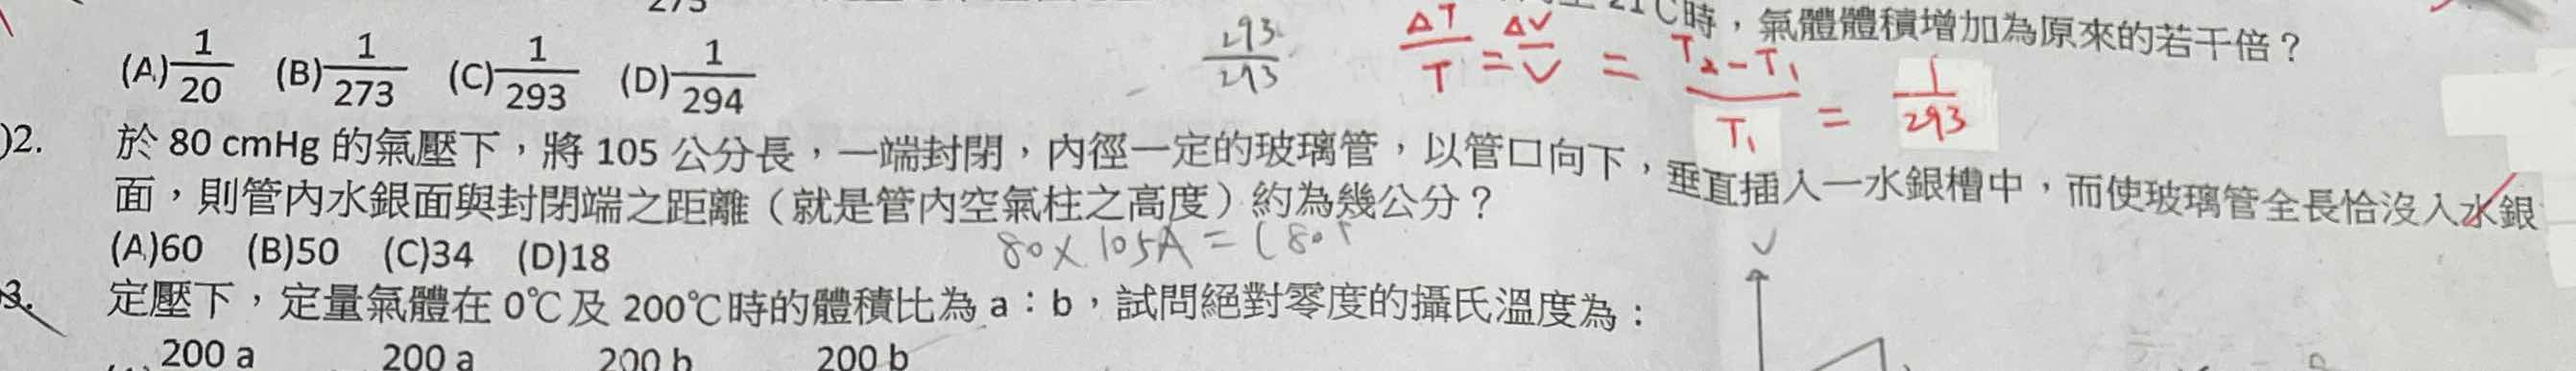 21℃時，氣體體積增加為原來的若干倍？
(A)1/20 (B)1/273 (C)1/293 (D)1/294
293/293
ΔT/T = ΔV/V = T₂-T₁/T₁ = 1/293
)2. 於 80 cmHg 的氣壓下，將 105 公分長，一端封閉，內徑一定的玻璃管，以管口向下，垂直插入一水銀槽中，而使玻璃管全長恰沒入水銀
面，則管內水銀面與封閉端之距離（就是管內空氣柱之高度）約為幾公分？
(A)60 (B)50 (C)34 (D)18
80×105A = (80+
V
3. 定壓下，定量氣體在 0℃及 200℃時的體積比為 a：b，試問絕對零度的攝氏溫度為：
200 a 200 a 200 b 200 b